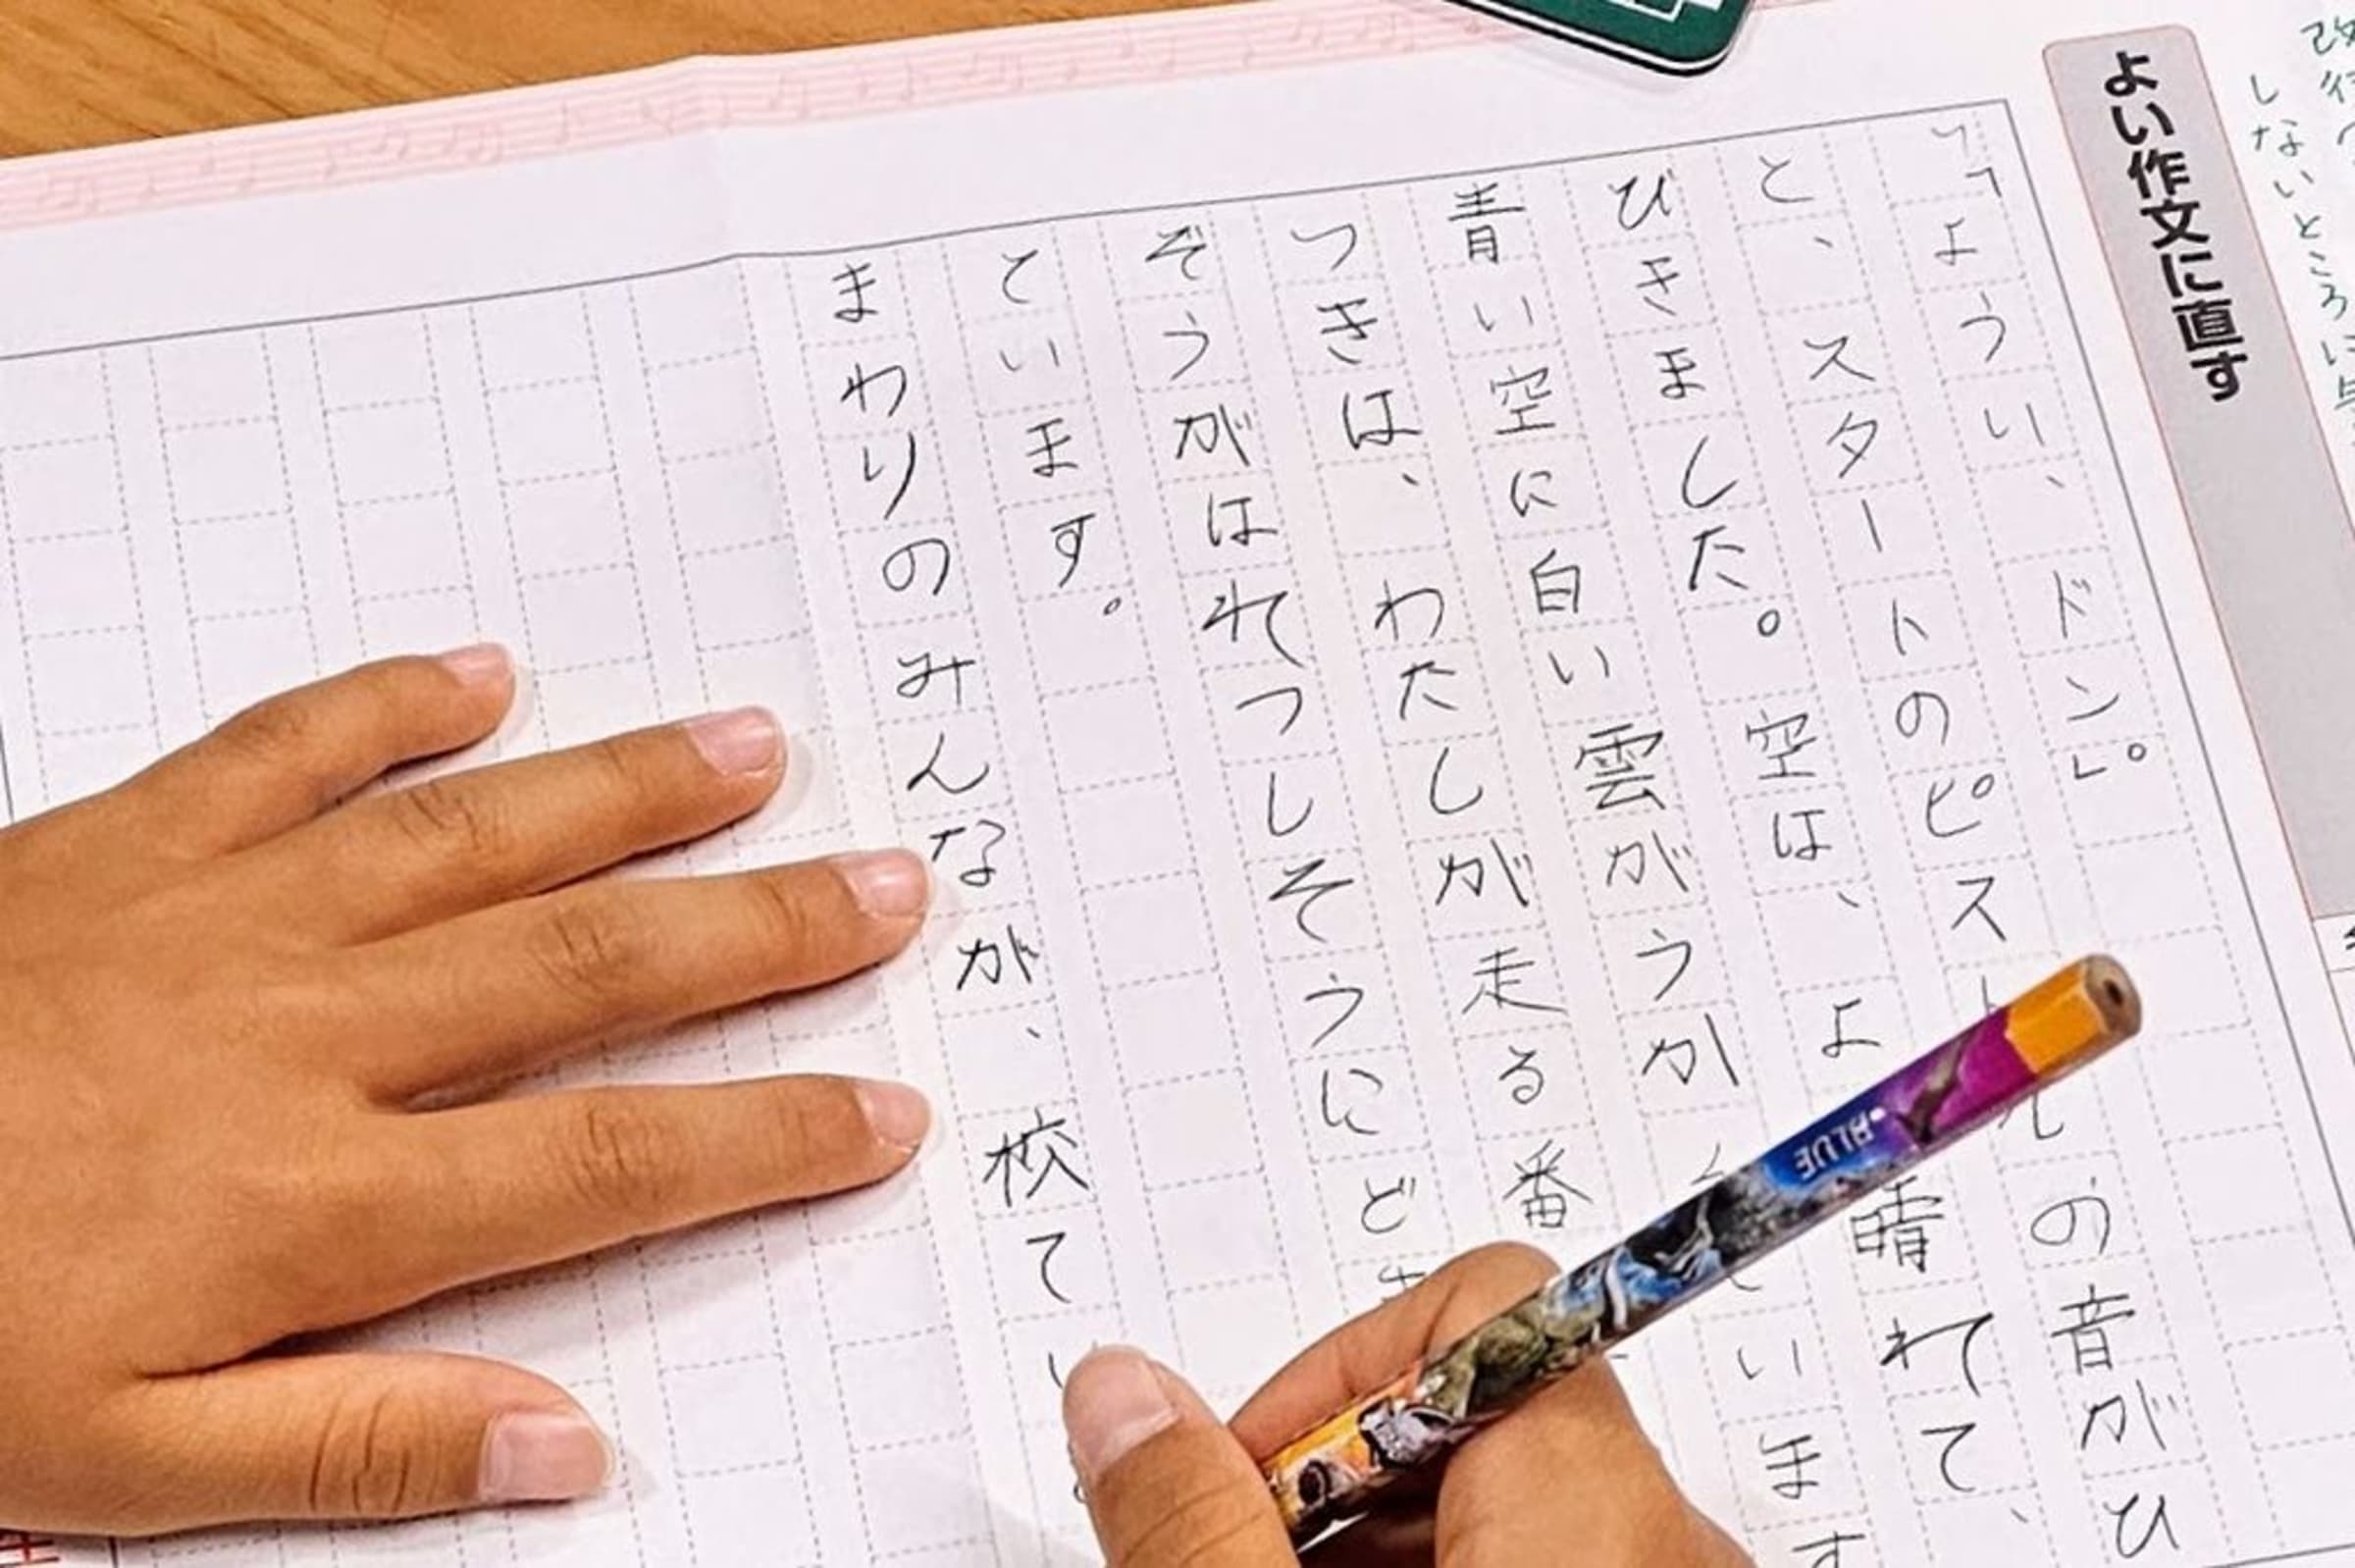 改行
しないところに
よい作文に直す
「ようい、ドン」。
と、スタートのピストルの音がひ
びきました。空は、よ晴れて、
青い空に白い雲がうかんでいます
つきは、わたしが走る番
ぞうがはれつしそうにどき
ています。
まわりのみんなが、校てい